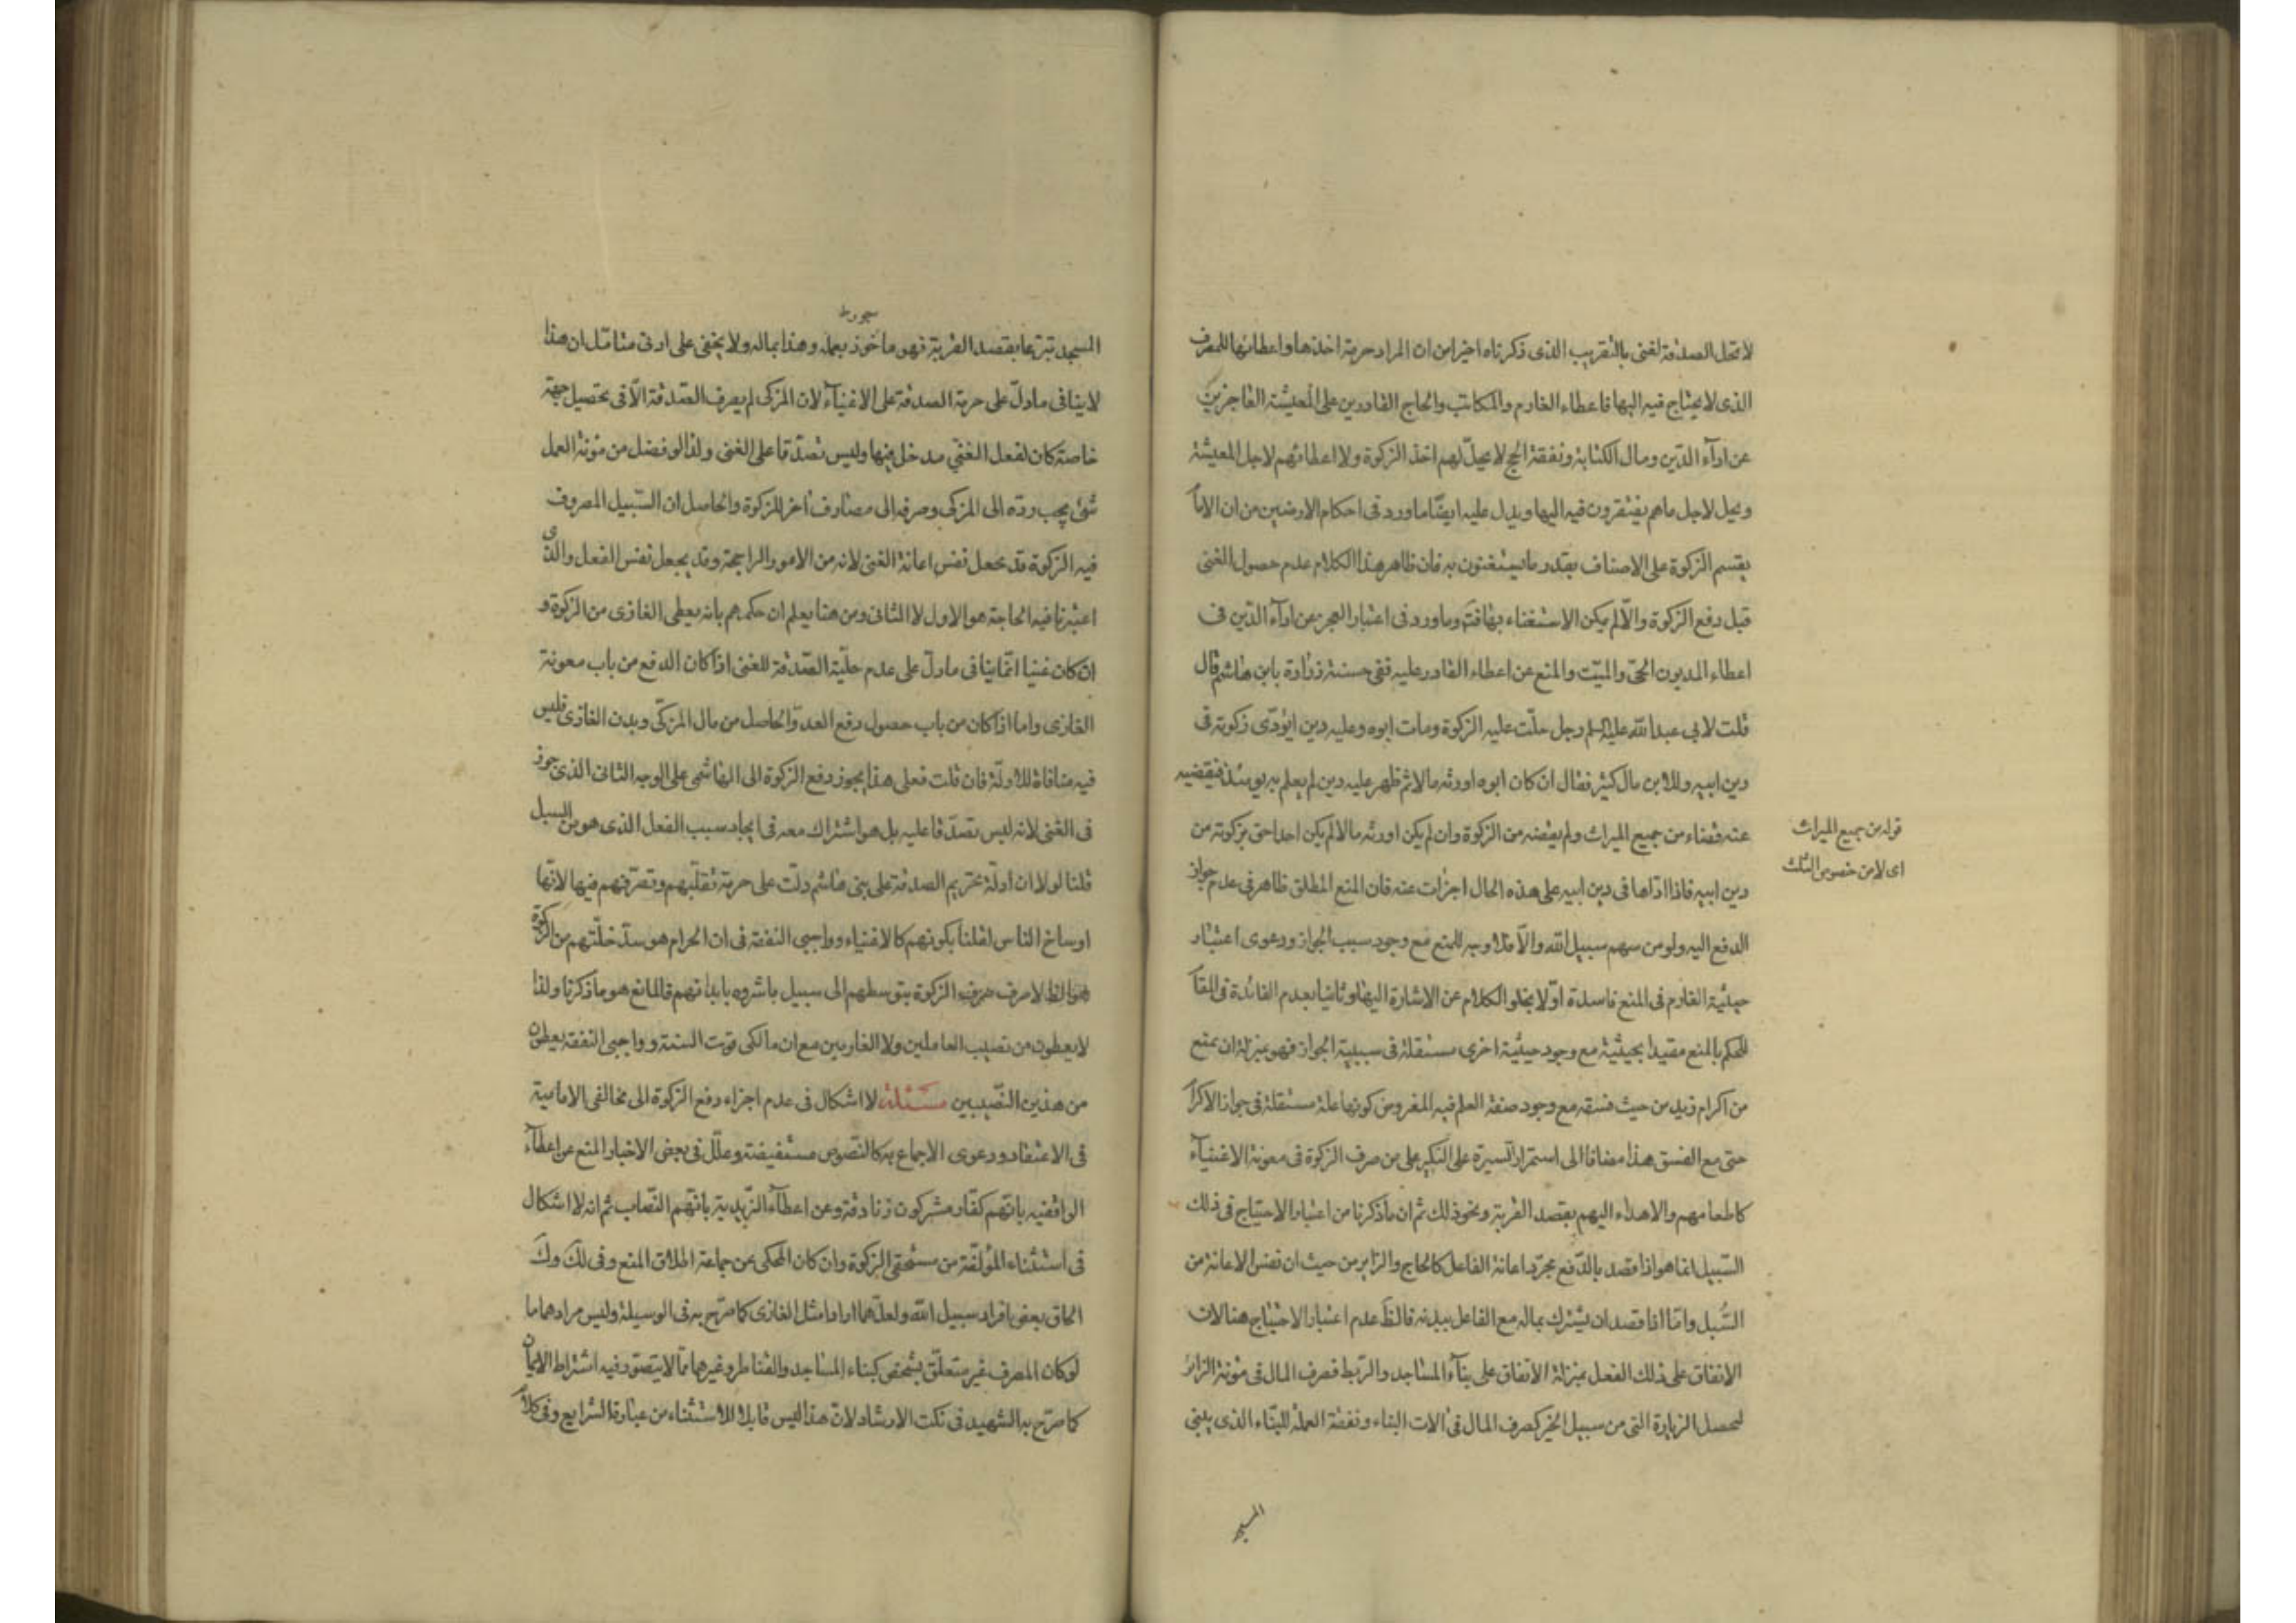 لا تحل الصدقة لغنى بالتقريب الذى ذكرناه اخيرا من ان المراد حرمة اخذها واعطائها للمصرف
الذى لا يحتاج فيه اليها فاعطاء الغارم والمكاتب والحاج القادرين على المعيشة العاجزين
عن ادآء الدّين ومال الكتابة ونفقة الحج لا يحلّ لهم اخذ الزكوة ولا اعطائهم لاجل المعيشة
ويحل لاجل ما هم يفتقرون فيه اليها ويدل عليه ايضا ما ورد فى احكام الارضين من ان الاما
يقسم الزكوة على الاصناف بقدر ما يستغنون به فان ظاهر هذا الكلام عدم حصول الغنى
قبل دفع الزكوة والّا لم يكن الاستغناء بها فتم وما ورد فى اعتبار العجز عن ادآء الدّين فى
اعطاء المديون الحىّ والميّت والمنع عن اعطاء القادر عليه ففى حسنة زرارة بابن هاشم قال
قلت لابى عبد الله عليه السلم رجل حلّت عليه الزكوة ومات ابوه وعليه دين ايؤدّى زكوته فى
دين ابيه وللابن مال كثير فقال ان كان ابوه اورثه مالا ثم ظهر عليه دين لم يعلم به يومئذ فيقضيه
عنه قضاه من جميع الميراث ولم يقضه من الزكوة وان لم يكن اورثه مالا لم يكن احد احق بزكوته من
دين ابيه فاذا ادّاها فى دين ابيه على هذه الحال اجزأت عنه فان المنع المطلق ظاهر فى عدم جواز
الدفع اليه ولو من سهم سبيل الله والّا فلا وجه للمنع مع وجود سبب الجواز ودعوى اعتبار
حيثية الغارم فى المنع فاسدة اوّلا بخلو الكلام عن الاشارة اليها وثانيا بعدم الفائدة فى المقا
للحكم بالمنع مقيدا بحيثية مع وجود حيثية اخرى مستقلة فى سببية الجواز فهو بمنزلة ان يمنع
من اكرام زيد من حيث فسقه مع وجود صفة العلم فيه المفروض كونها علة مستقلة فى جواز الاكرا
حتى مع الفسق هذا مضافا الى استمرار السيرة على النكير على من صرف الزكوة فى معونة الاغنيآء
كاطعامهم والاهداء اليهم بقصد القربة ونحو ذلك ثم ان ما ذكرنا من اعتبار الاحتياج فى ذلك
السّبيل انما هو اذا قصد بالدّفع مجرّد اعانة الفاعل كالحاج والزاير من حيث ان نفس الاعانة من
السُّبل وامّا اذا قصد ان يشترك بماله مع الفاعل ببدنه فالظَ عدم اعتبار الاحتياج هنا لان
الانفاق على ذلك الفعل بمنزلة الانفاق على بنآء المساجد والرّبط فصرف المال فى مؤنة الزائر
لتحصل الزيارة التى من سبيل الخير كصرف المال فى الات البناء ونفقة العملة للبنّاء الذى يبنى
المسجد
قوله من جميع الميراث
اى لا من خصوص الثلث
المسجد تبرعا بقصد القربة فهو ماخوذ بعمله وهذا بماله ولا يخفى على ادنى متامّل ان هذا
لا ينافى ما دلّ على حرمة الصدقة على الاغنيآء لان المزكى لم يصرف الصّدقة الّا فى تحصيل جهة
خاصّة كان لفعل الغنّي مدخل فيها وليس تصدّقا على الغنى ولذا لو فضل من مؤنة العمل
شئ يجب ردّه الى المزكى وصرفه الى مصارف اخر للزكوة والحاصل ان السّبيل المصروف
فيه الزكوة قد يجعل نفس اعانة الغنى لانه من الامور الراجحة وقد يجعل نفس الفعل والذى
اعتبرنا فيه الحاجة هو الاول لا الثانى ومن هنا يعلم ان حكمهم بانه يعطى الغازى من الزكوة و
ان كان غنيا انّما ينافى ما دلّ على عدم حلّية الصّدقة للغنى اذا كان الدفع من باب معونة
الغازى واما اذا كان من باب حصول دفع العدوّ الحاصل من مال المزكّى وبدن الغازى فليس
فيه منافاة للادلّة فان قلت فعلى هذا يجوز دفع الزكوة الى الهاشمى على الوجه الثانى الذى جوز
فى الغنى لانه ليس تصدّقا عليه بل هو اشتراك معه فى ايجاد سبب الفعل الذى هو من السبيل
قلنا لولا ان ادلّة تحريم الصدقة على بنى هاشم دلّت على حرمة تقلّبهم وتصرّفهم فيها لانّها
اوساخ الناس لقلنا بكونهم كالاغنياء وواجبى النفقة فى ان الحرام هو سدّ خلّتهم من الزكوة
لا صرف الزكوة بتوسطهم الى سبيل باشروه بابدانهم فالمانع هو ما ذكرنا ولذا
لا يعطون من نصيب العاملين ولا الغارمين مع ان مالكى قوت السنة وواجبى النفقة يعطون
من هذين النّصيبين مسئلة لا اشكال فى عدم اجزاء دفع الزكوة الى مخالفى الامامية
فى الاعتقاد ودعوى الاجماع به كالنّصوص مستفيضة وعلّل فى بعض الاخبار المنع عن اعطآء
الواقفيه بانّهم كفّار مشركون زنادقة وعن اعطآء الزّيدية بانّهم النّصاب ثم انه لا اشكال
فى استثناء المؤلّفة من مستحقى الزكوة وان كان المحكى عن جماعة اطلاق المنع وفى لك وك
الحاق بعض افراد سبيل الله ولعلّهما ارادا مثل الغازى كما صرّح به فى الوسيلة وليس مرادهما ما
لو كان المصرف غير متعلّق بشخص كبناء المساجد والقناطر وغيرهما ممّا لا يتصوّر فيه اشتراط الايمان
كما صرّح به الشهيد فى نكت الارشاد لانّ هذا ليس قابلا للاستثناء من عبارة الشرايع وفى كلا